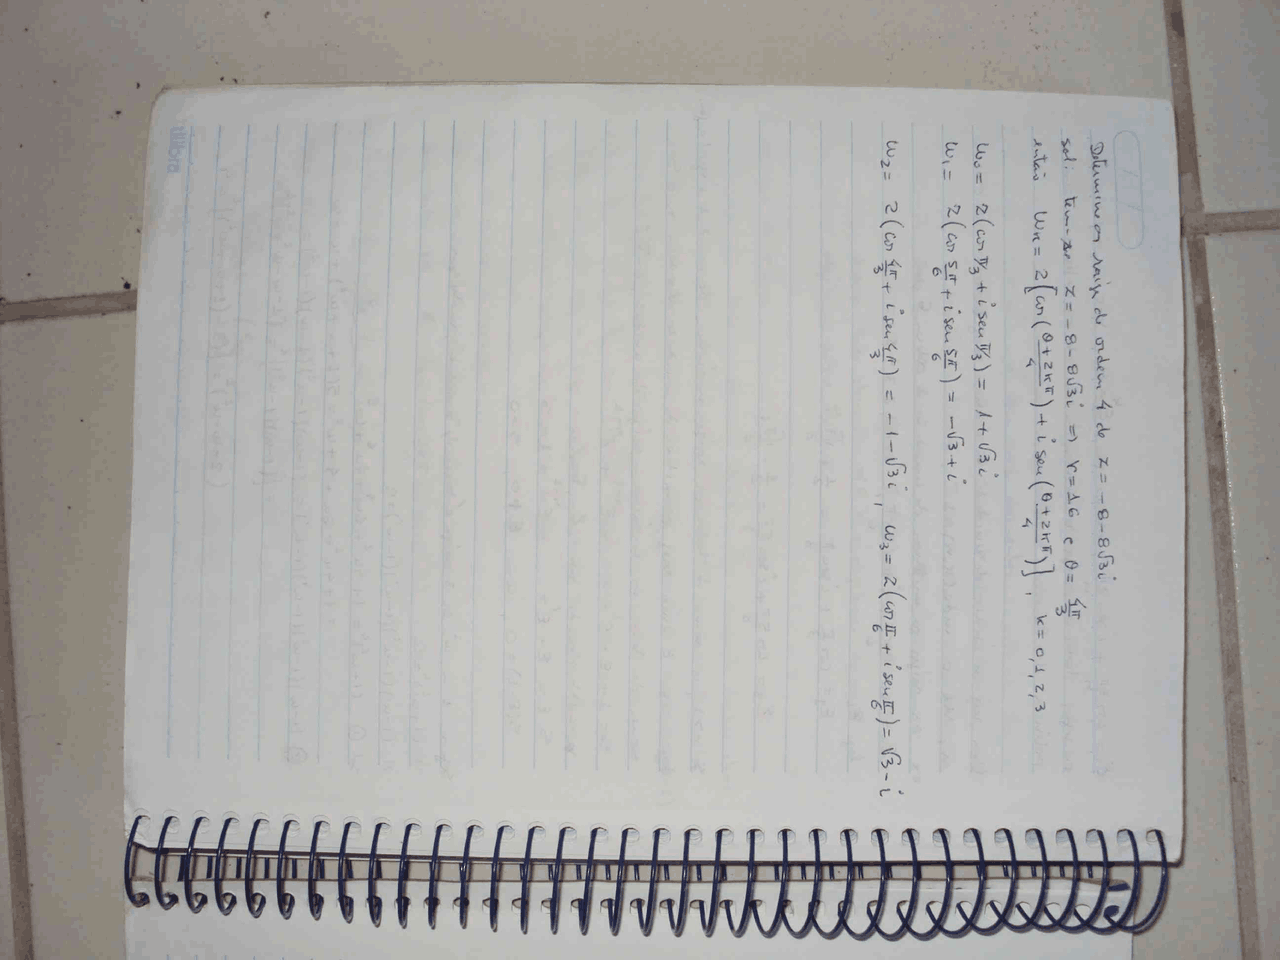 Determine as raízes de ordem 4 de z = -8 - 8√3 i
sol: tem-se z = -8 - 8√3 i ⇒ r = 16 e θ = 4π/3
então W_k = 2[cos((θ+2kπ)/4) + i sen((θ+2kπ)/4)], k = 0, 1, 2, 3
W_0 = 2(cos π/3 + i sen π/3) = 1 + √3 i
W_1 = 2(cos 5π/6 + i sen 5π/6) = -√3 + i
W_2 = 2(cos 4π/3 + i sen 4π/3) = -1 - √3 i, W_3 = 2(cos π/6 + i sen π/6) = √3 - i